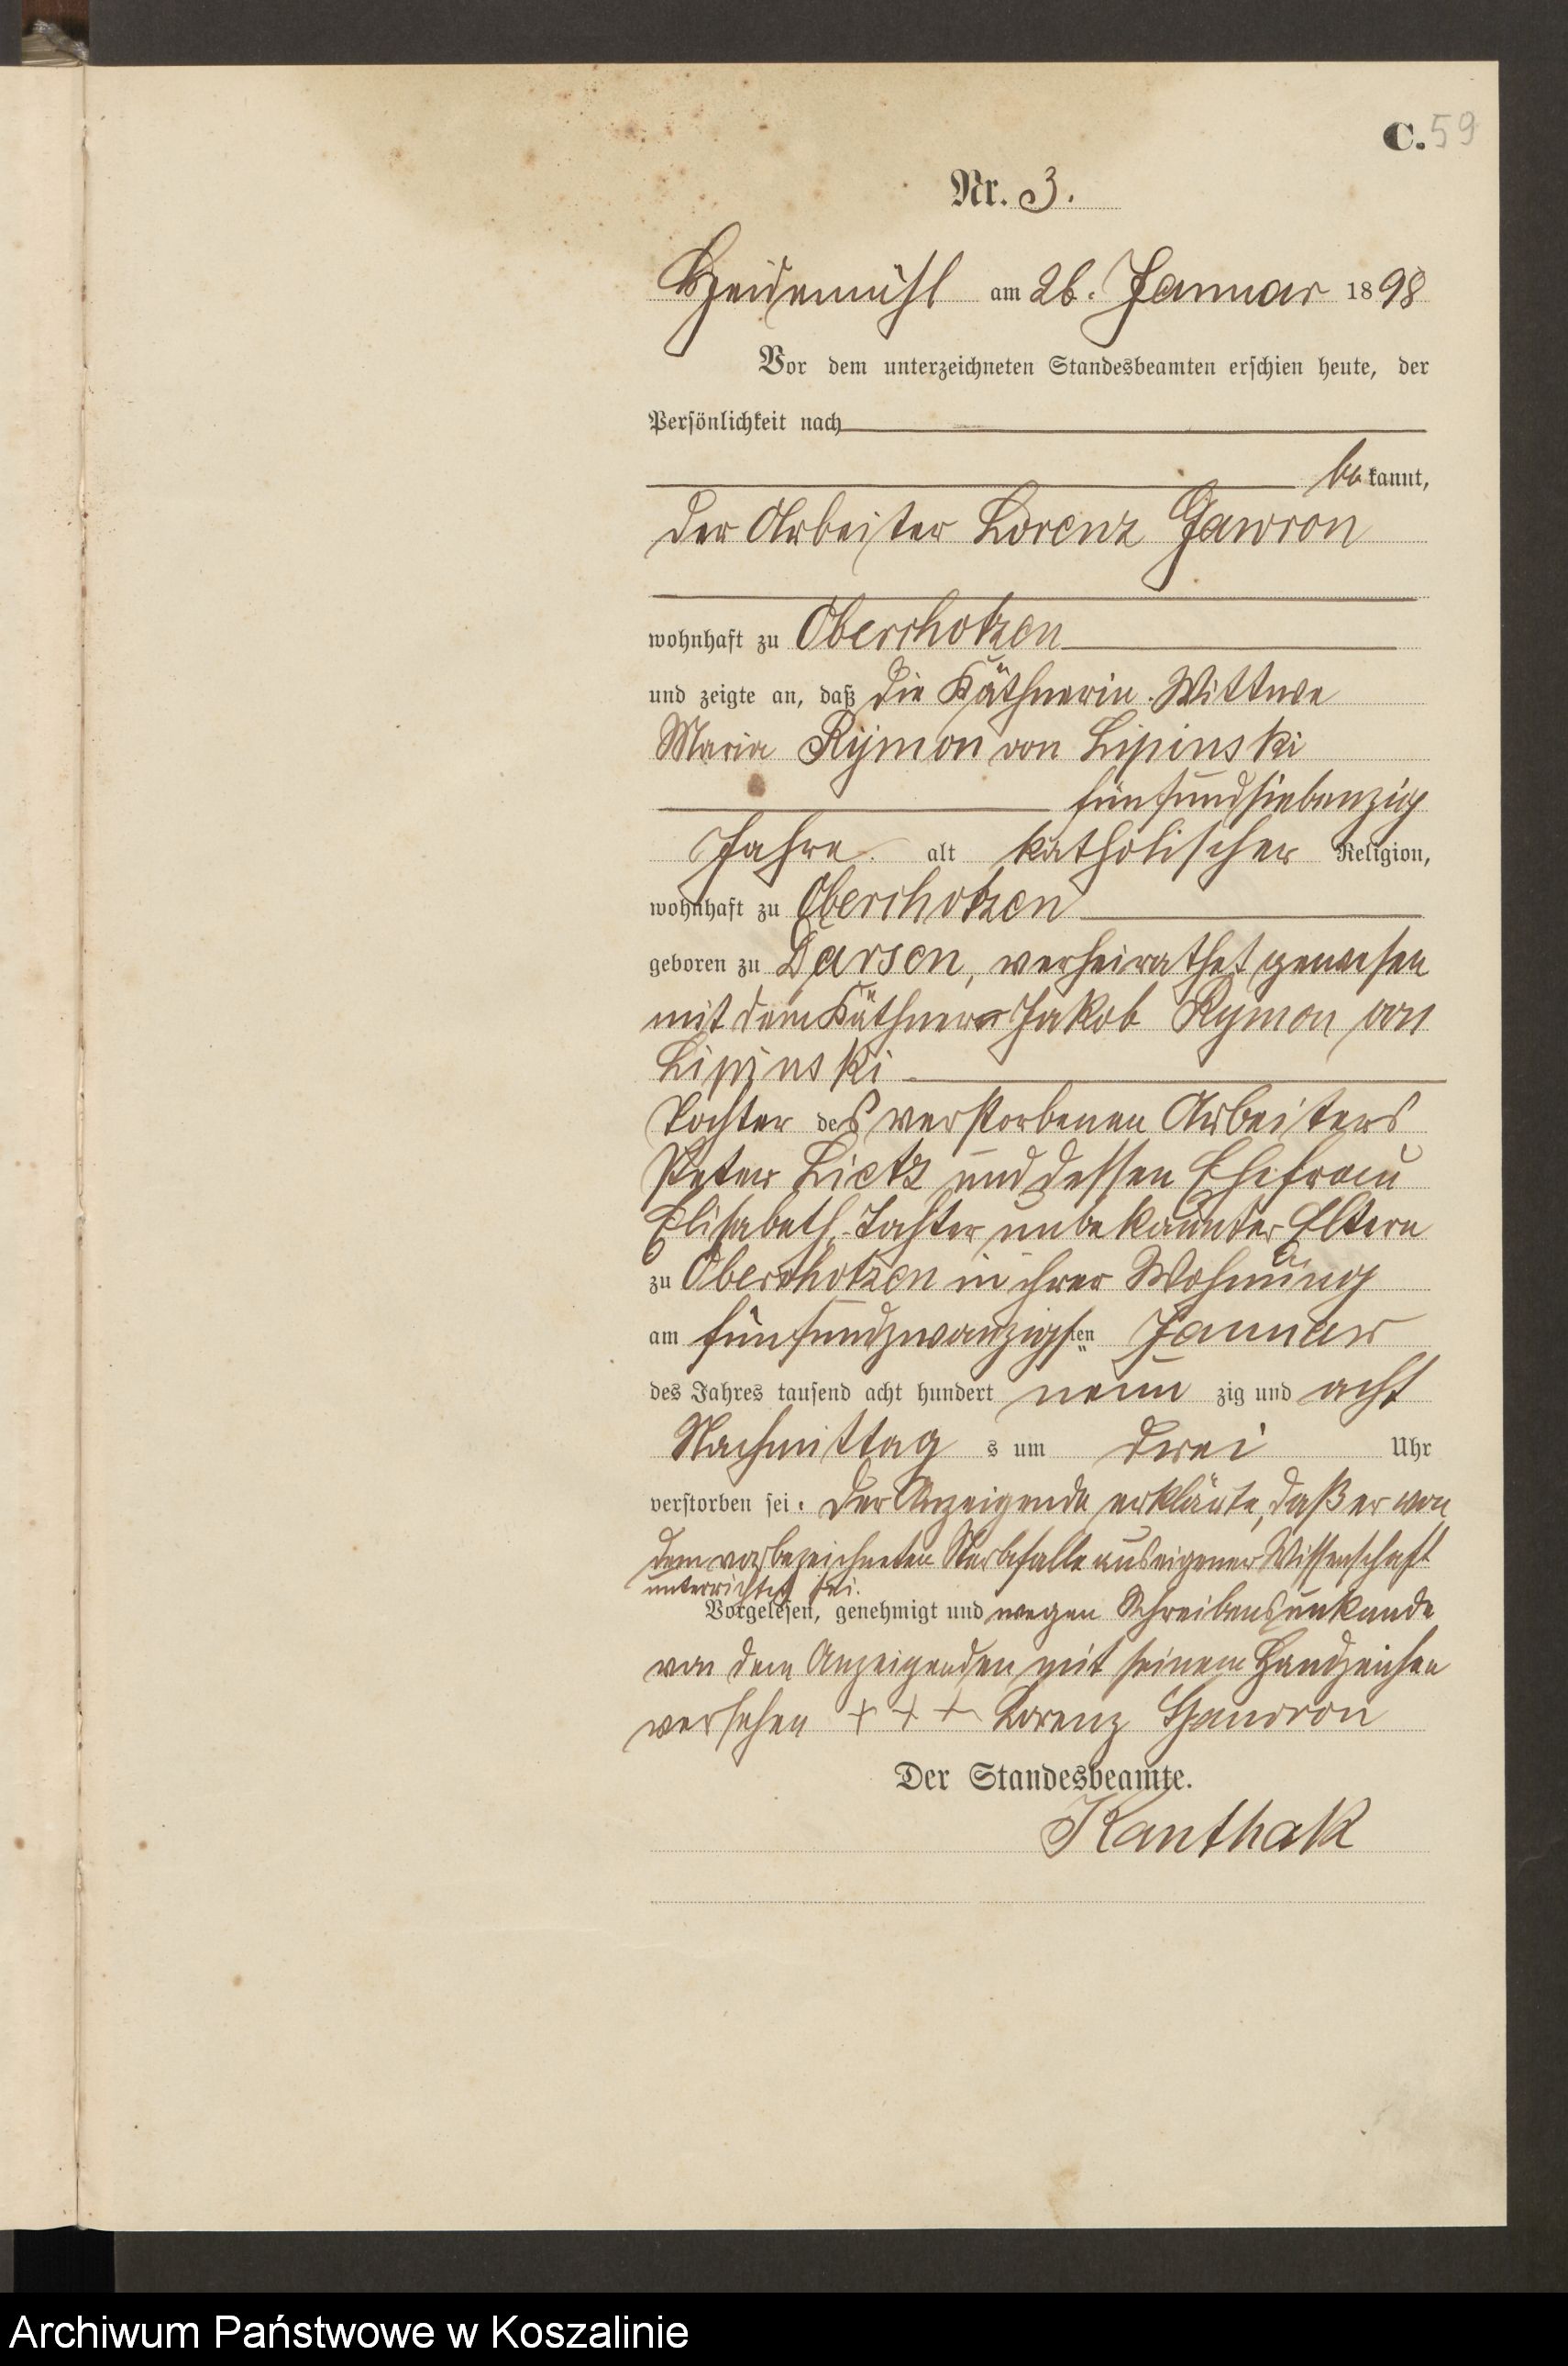 C. 59
Nr. 3.
Heidemühl am 26. Januar 1898
Vor dem unterzeichneten Standesbeamten erschien heute, der
Persönlichkeit nach
bekannt,
der Arbeiter Lorenz Gawron
wohnhaft zu Oberchotzen
und zeigte an, daß die Käthnerin. Wittwe
Maria Rymon von Lipinski
fünfundsiebenzig
Jahre alt katholischer Religion,
wohnhaft zu Oberchotzen
geboren zu Darsen, verheirathet gewesen
mit dem Käthner Jakob Rymon von
Lipinski
Tochter des verstorbenen Arbeiters
Peter Lietz und dessen Ehefrau
Elisabeth, Tochter unbekannter Eltern
zu Oberchotzen in ihrer Wohnung
am fünfundzwanzigsten Januar
des Jahres tausend acht hundert neun zig und acht
Nachmittag s um drei Uhr
verstorben sei. Der Anzeigende erklärte, daß er von
dem vorbezeichneten Sterbefalle aus eigener Wissenschaft
unterrichtet sei.
Vorgelesen, genehmigt und wegen Schreibensunkunde
von dem Anzeigenden mit seinem Handzeichen
versehen + + + Lorenz Gawron
Der Standesbeamte.
Kanthak
Archiwum Państwowe w Koszalinie